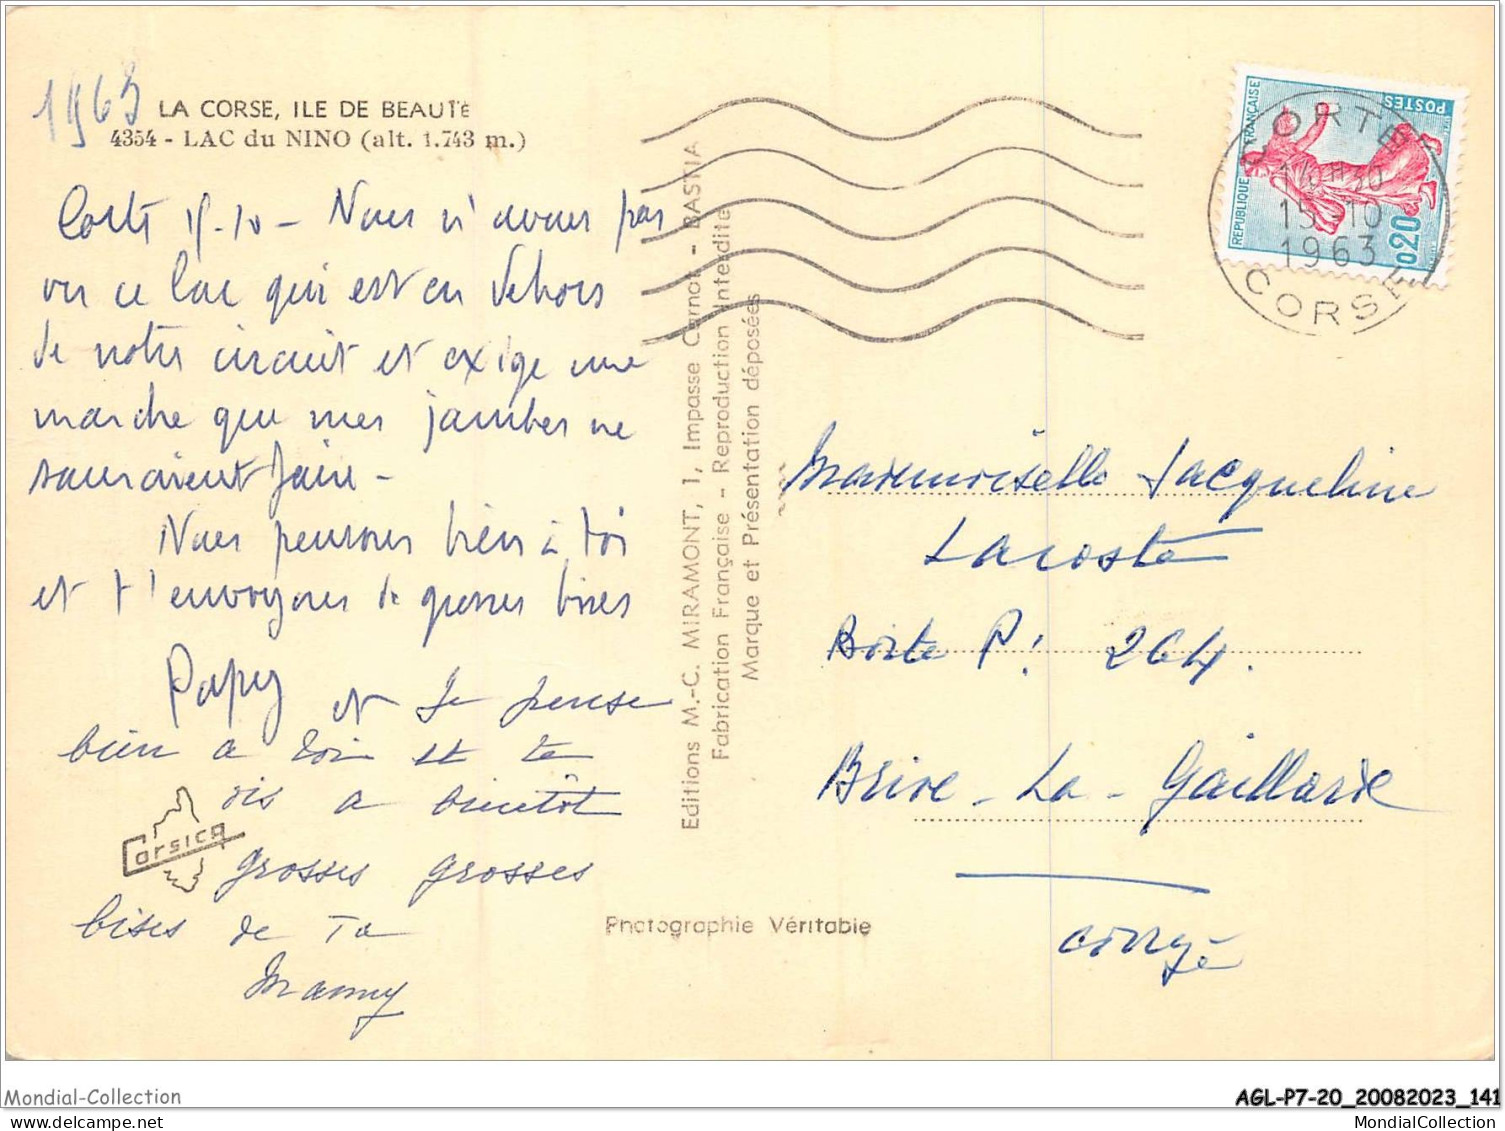 1963
LA CORSE, ILE DE BEAUTÉ
4354 - LAC du NINO (alt. 1.743 m.)
Corte 15-10 - Nous n'avons pas
vu ce lac qui est en dehors
de notre circuit et exige une
marche que mes jambes ne
sauraient faire -
Nous pensons bien à toi
et t'envoyons de grosses bises
Papy et Je pense
bien a toi et te
dis a bientôt
grosses grosses
bises de Ta
Mamy
Corsica
Editions M.-C. MIRAMONT, 1, Impasse Carnot - BASTIA
Fabrication Française - Reproduction Interdite
Marque et Présentation déposées
Photographie Véritable
REPUBLIQUE FRANÇAISE
POSTES
0,20
CORTE
14H30
15-10
1963
CORSE
Mademoiselle Jacqueline
Lacoste
Boite P. 264.
Brive-La-Gaillarde
Corrèze
Mondial-Collection
AGL-P7-20_20082023_141
MondialCollection